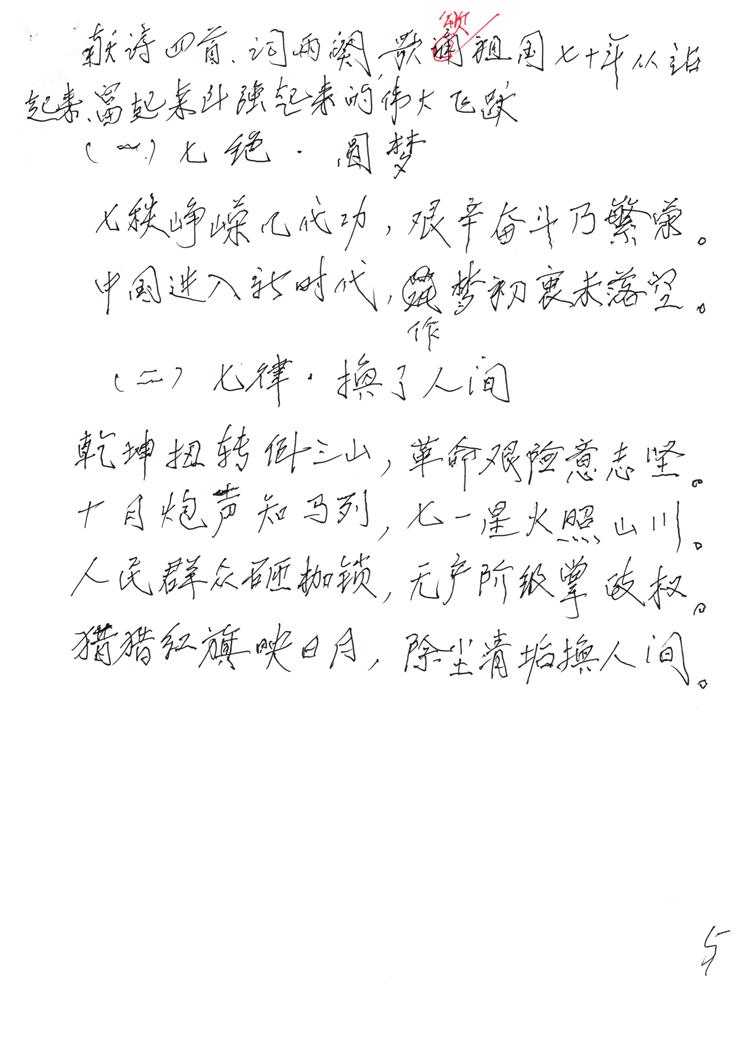 献诗四首、词两阕,歌颂祖国七十年从站
起来、富起来到强起来的伟大飞跃
(一)七绝·圆梦
七秩峥嵘几代功,艰辛奋斗乃繁荣。
中国进入新时代,梦初衷未落空。
作
(二)七律·换了人间
乾坤扭转倒三山,革命艰险意志坚。
十月炮声知马列,七一星火照山川。
人民群众砸枷锁,无产阶级掌政权。
猎猎红旗映日月,除尘清垢换人间。
5